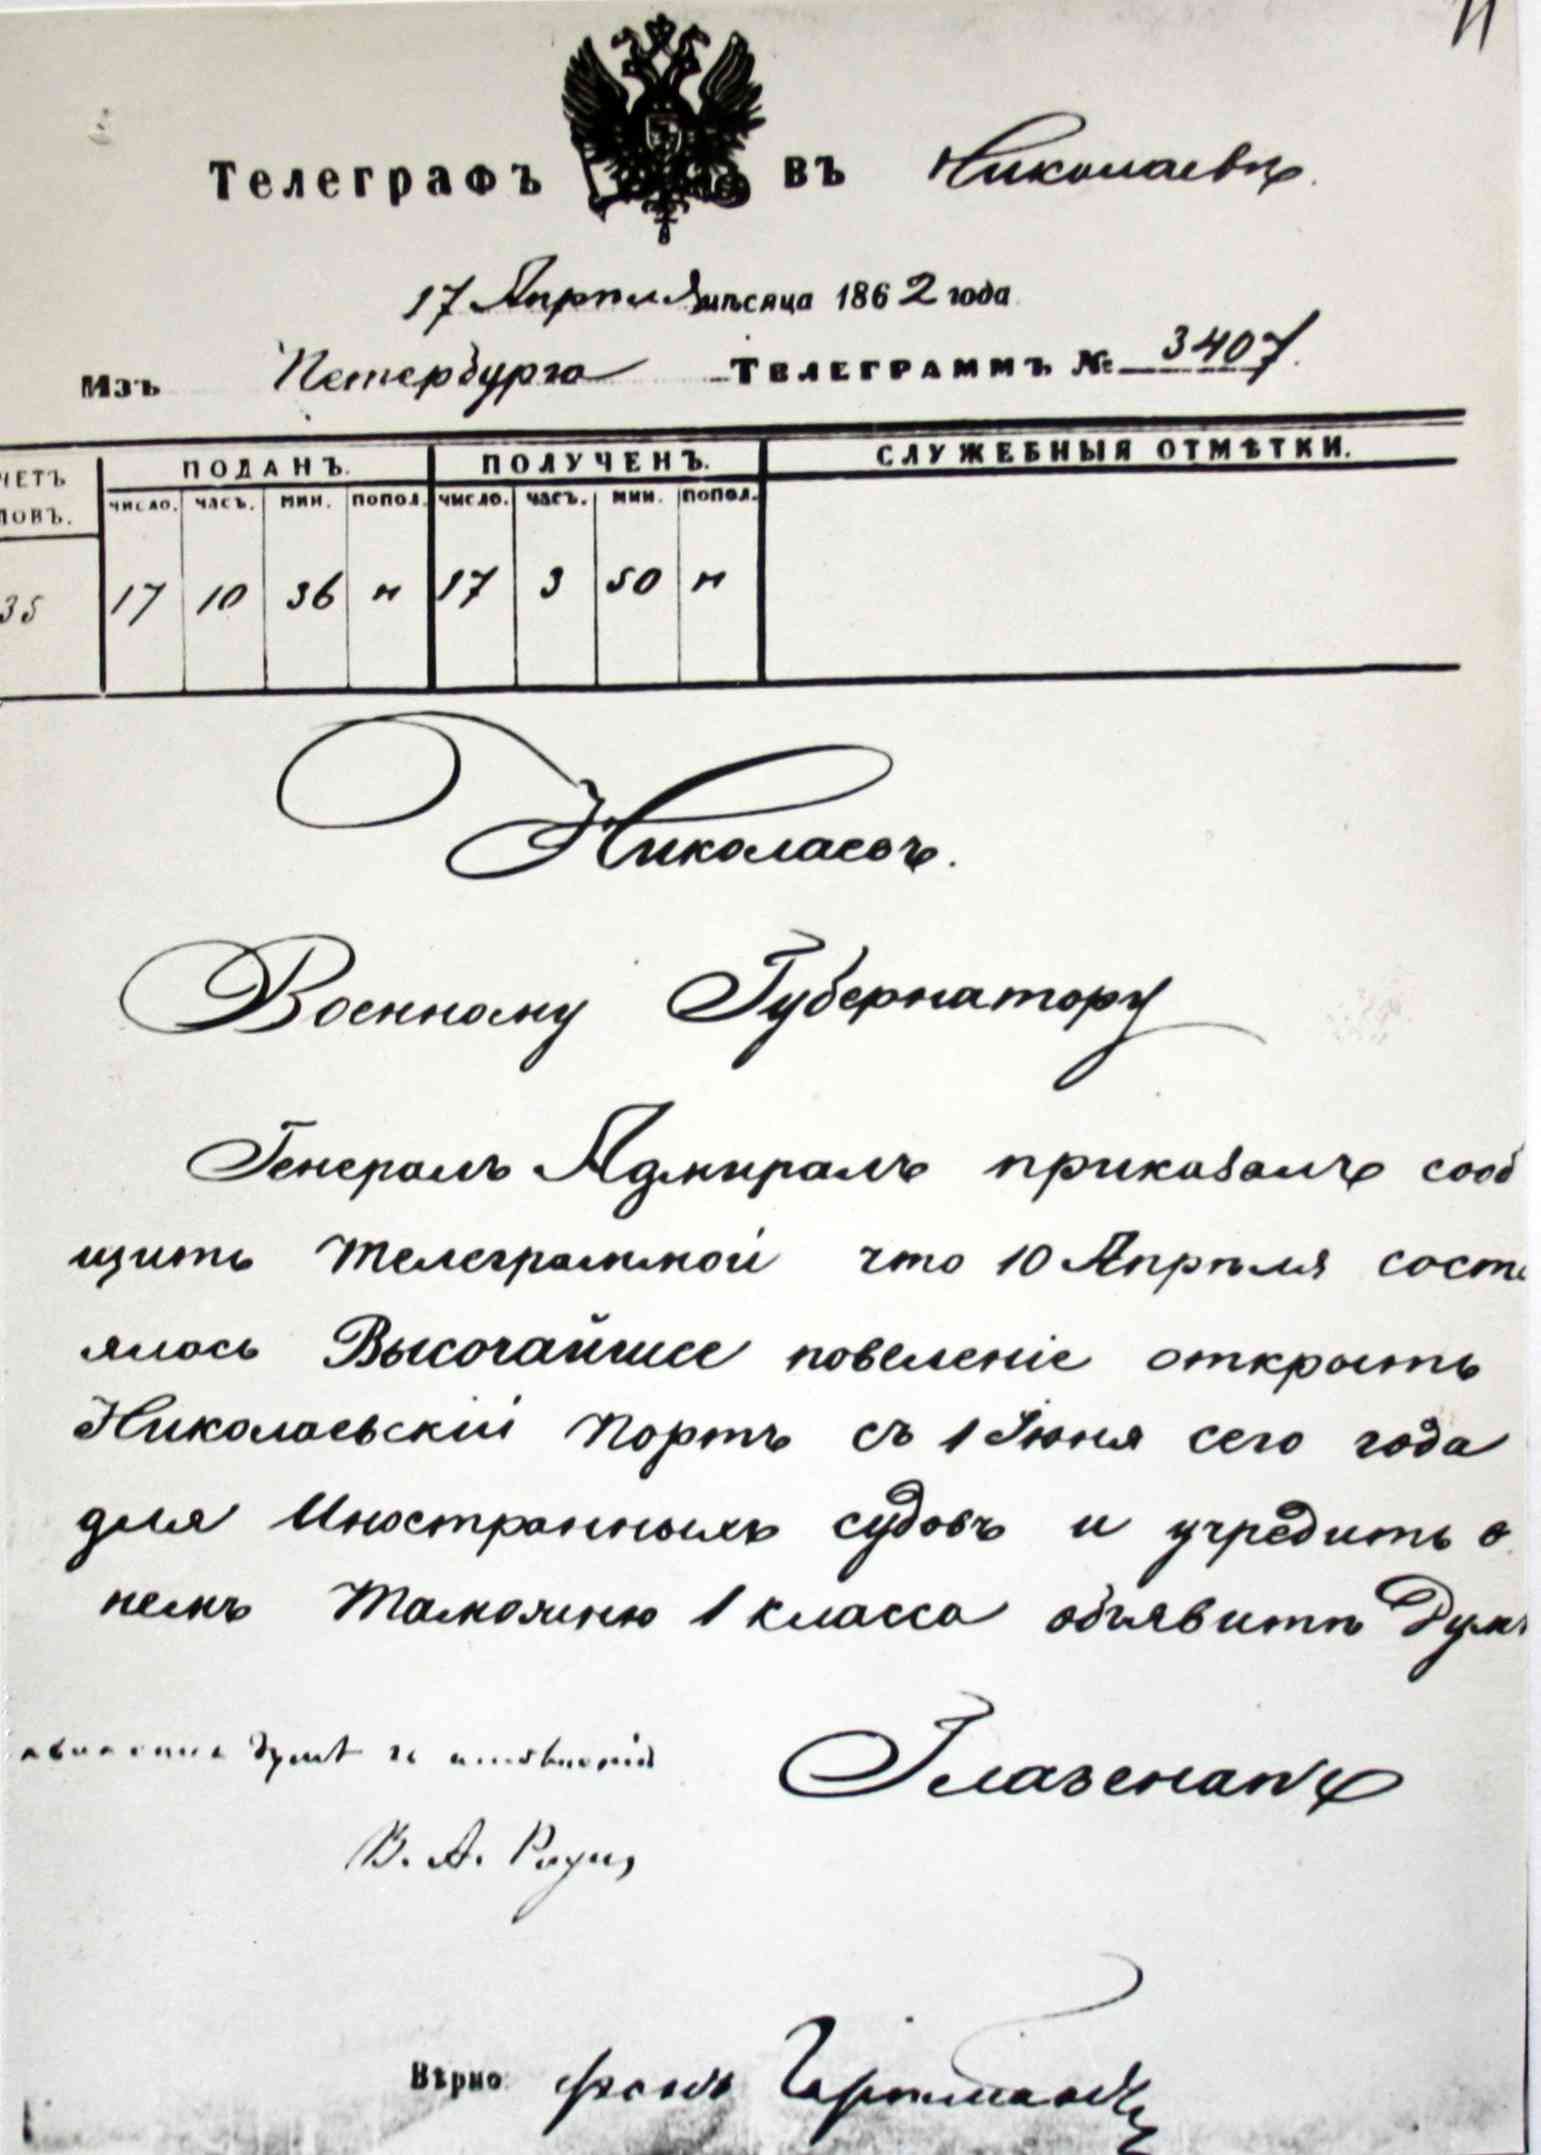 Телеграфъ въ Николаевѣ.
17 Апрѣля мѣсяца 1862 года
Изъ Петербурга Телеграммъ № 3407.
ЧЕТЪ ПОДАНЪ. ПОЛУЧЕНЪ. СЛУЖЕБНЫЯ ОТМѢТКИ.
ЛОВЪ. ЧИСЛО. ЧАСЪ. МИН. ПОПОЛ. ЧИСЛО. ЧАСЪ. МИН. ПОПОЛ.
35 17 10 36 н 17 3 50 н
Николаевъ.
Военному Губернатору
Генералъ Адмиралъ приказалъ сооб
щить телеграммой что 10 Апрѣля состо
ялось Высочайшее повеленіе открыть
Николаевскій Портъ съ 1 Июня сего года
для Иностранныхъ судовъ и учредить в
немъ таможню 1 класса объявить Думѣ
Глазенапъ
Думѣ
В. А.
Вѣрно: фонъ